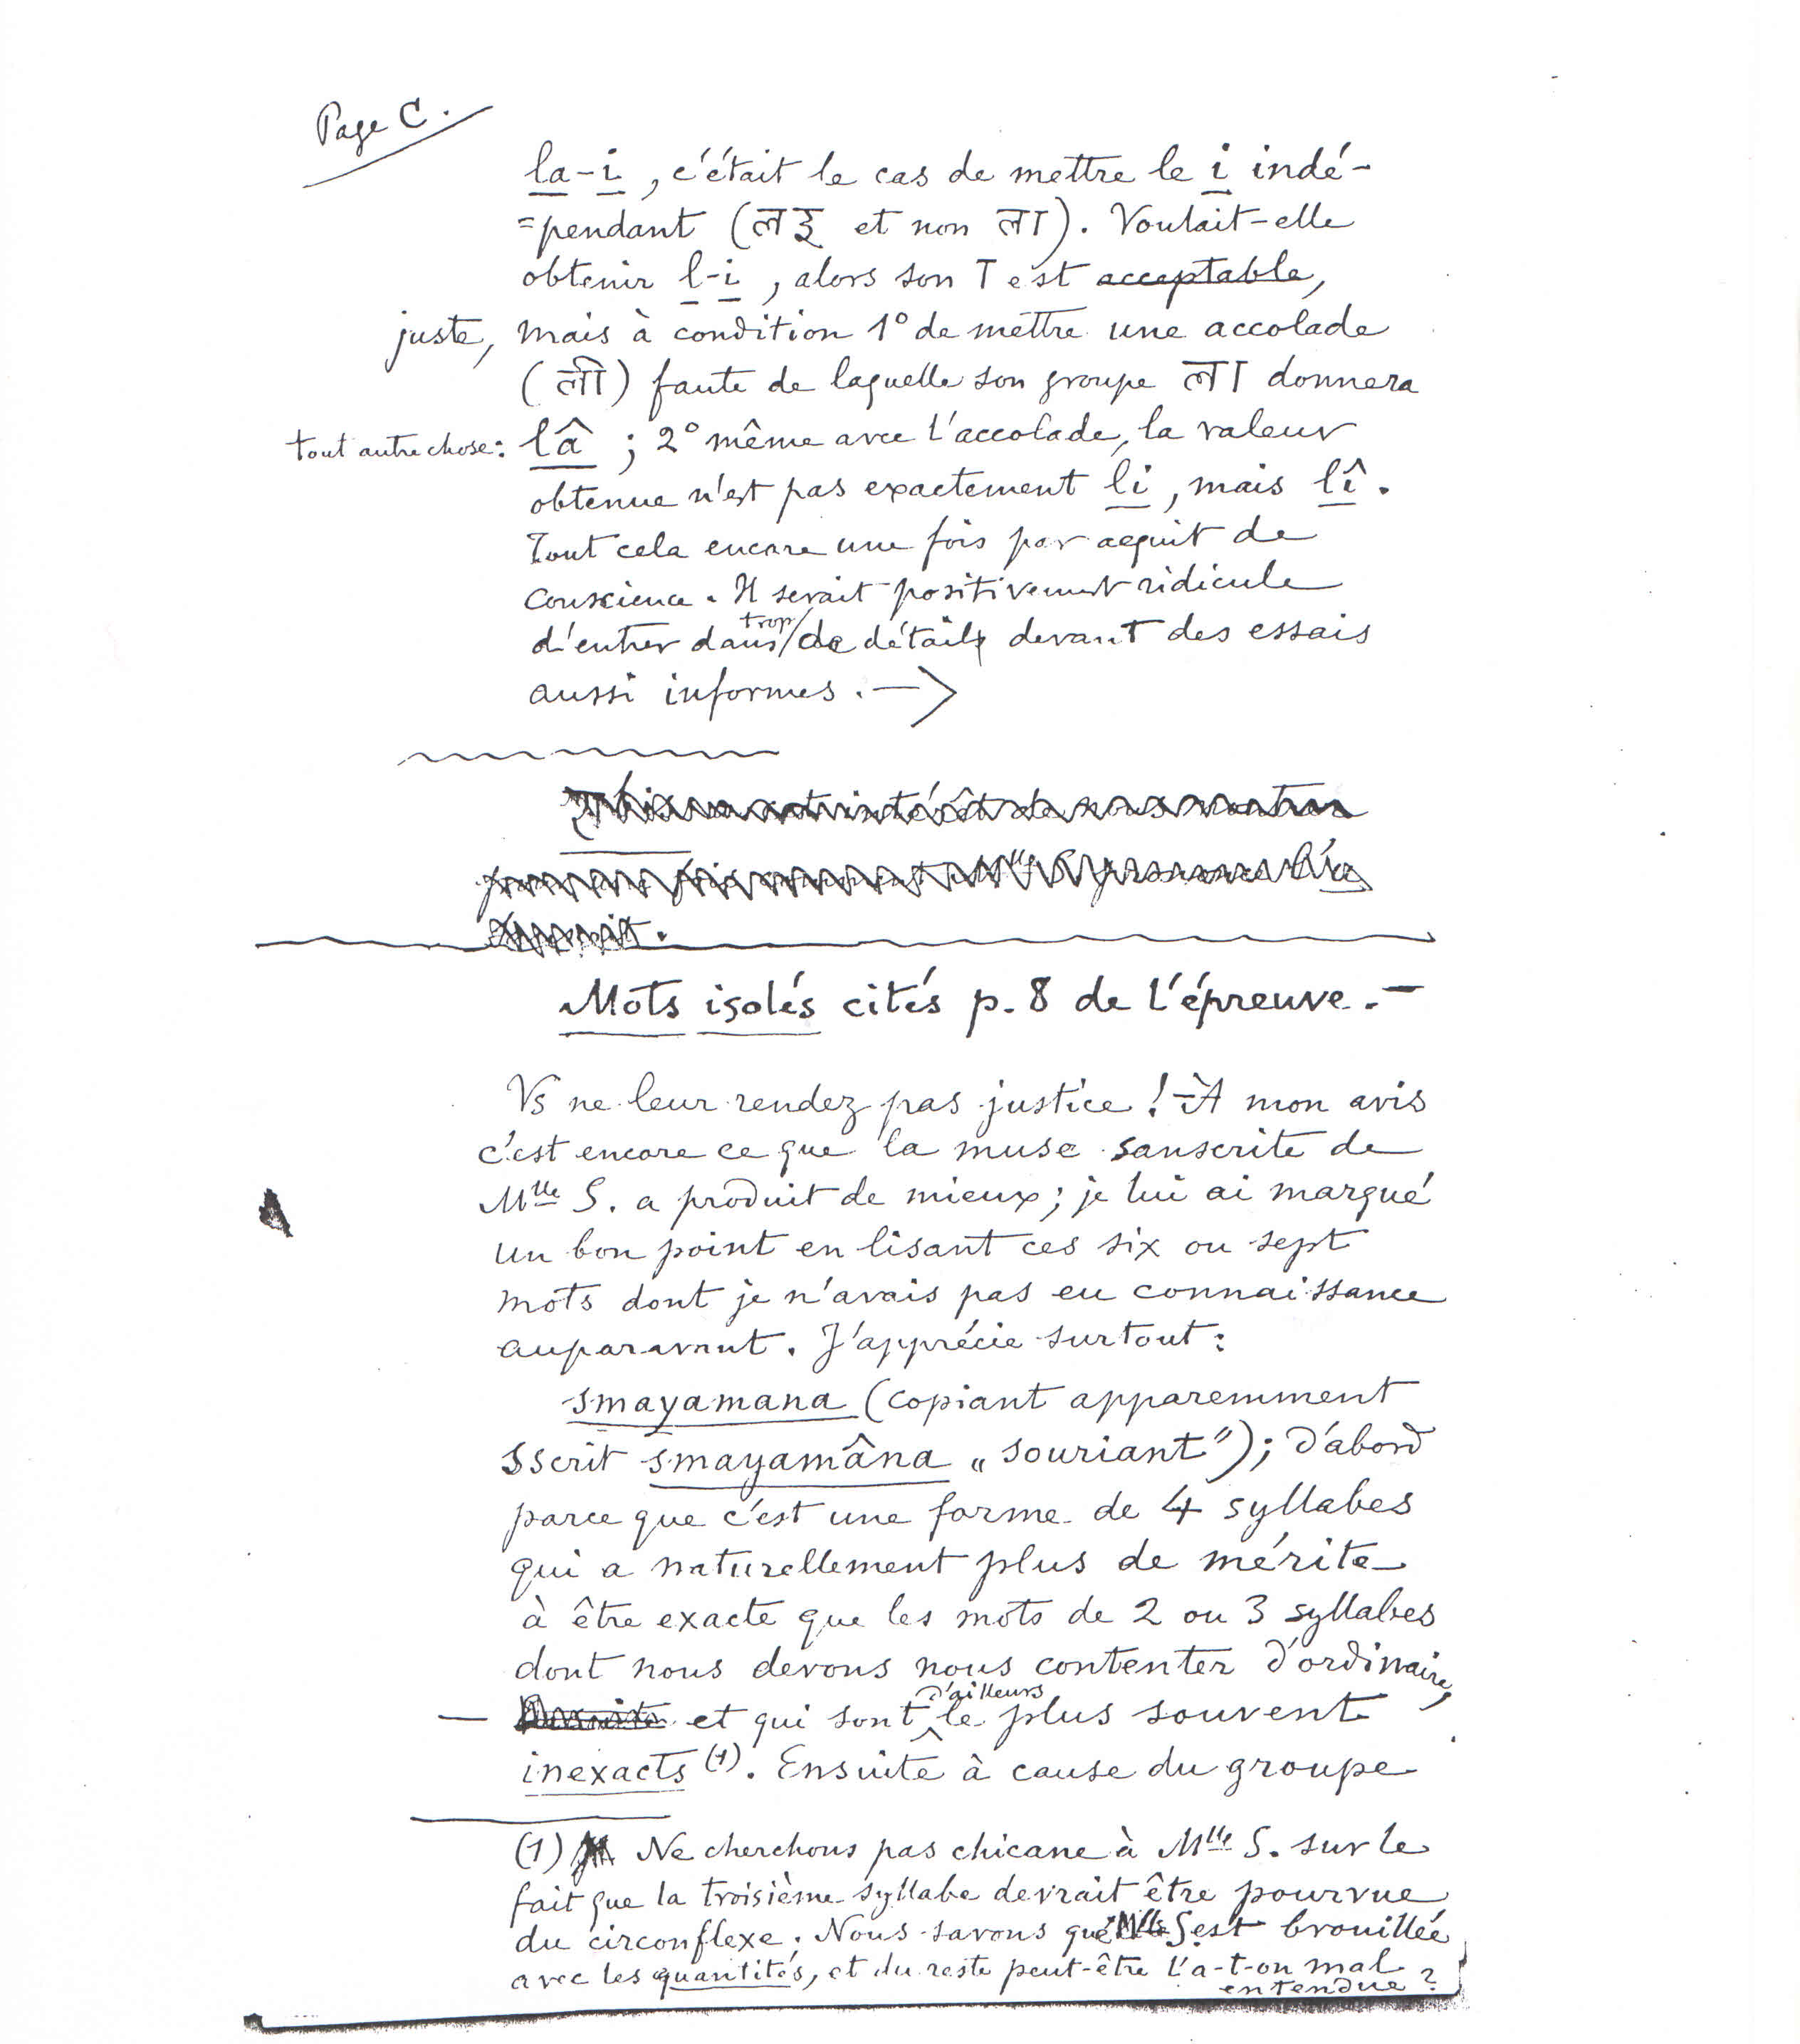 Page C.
la-i, c'était le cas de mettre le i indé-
=pendant (लइ et non ला). Voulait-elle
obtenir l-i, alors son T est acceptable,
juste, mais à condition 1° de mettre une accolade
(ली) faute de laquelle son groupe ला donnera
tout autre chose: lâ ; 2° même avec l'accolade, la valeur
obtenue n'est pas exactement li, mais lî.
Tout cela encore une fois par acquit de
conscience. Il serait positivement ridicule
d'entrer dans trop de détails devant des essais
aussi informes. —>
Mots isolés cités p. 8 de l'épreuve.-
Vs ne leur rendez pas justice! - À mon avis
c'est encore ce que la muse sanscrite de
Mlle S. a produit de mieux; je lui ai marqué
un bon point en lisant ces six ou sept
mots dont je n'avais pas eu connaissance
auparavant. J'apprécie surtout:
smayamana (copiant apparemment
sscrit smayamâna „souriant"); d'abord
parce que c'est une forme de 4 syllabes
qui a naturellement plus de mérite
à être exacte que les mots de 2 ou 3 syllabes
dont nous devons nous contenter d'ordinaire,
— et qui sont d'ailleurs le plus souvent
inexacts (1). Ensuite à cause du groupe
(1) Ne cherchons pas chicane à Mlle S. sur le
fait que la troisième syllabe devrait être pourvue
du circonflexe. Nous savons que Mlle S est brouillée
avec les quantités, et du reste peut-être l'a-t-on mal
entendue?